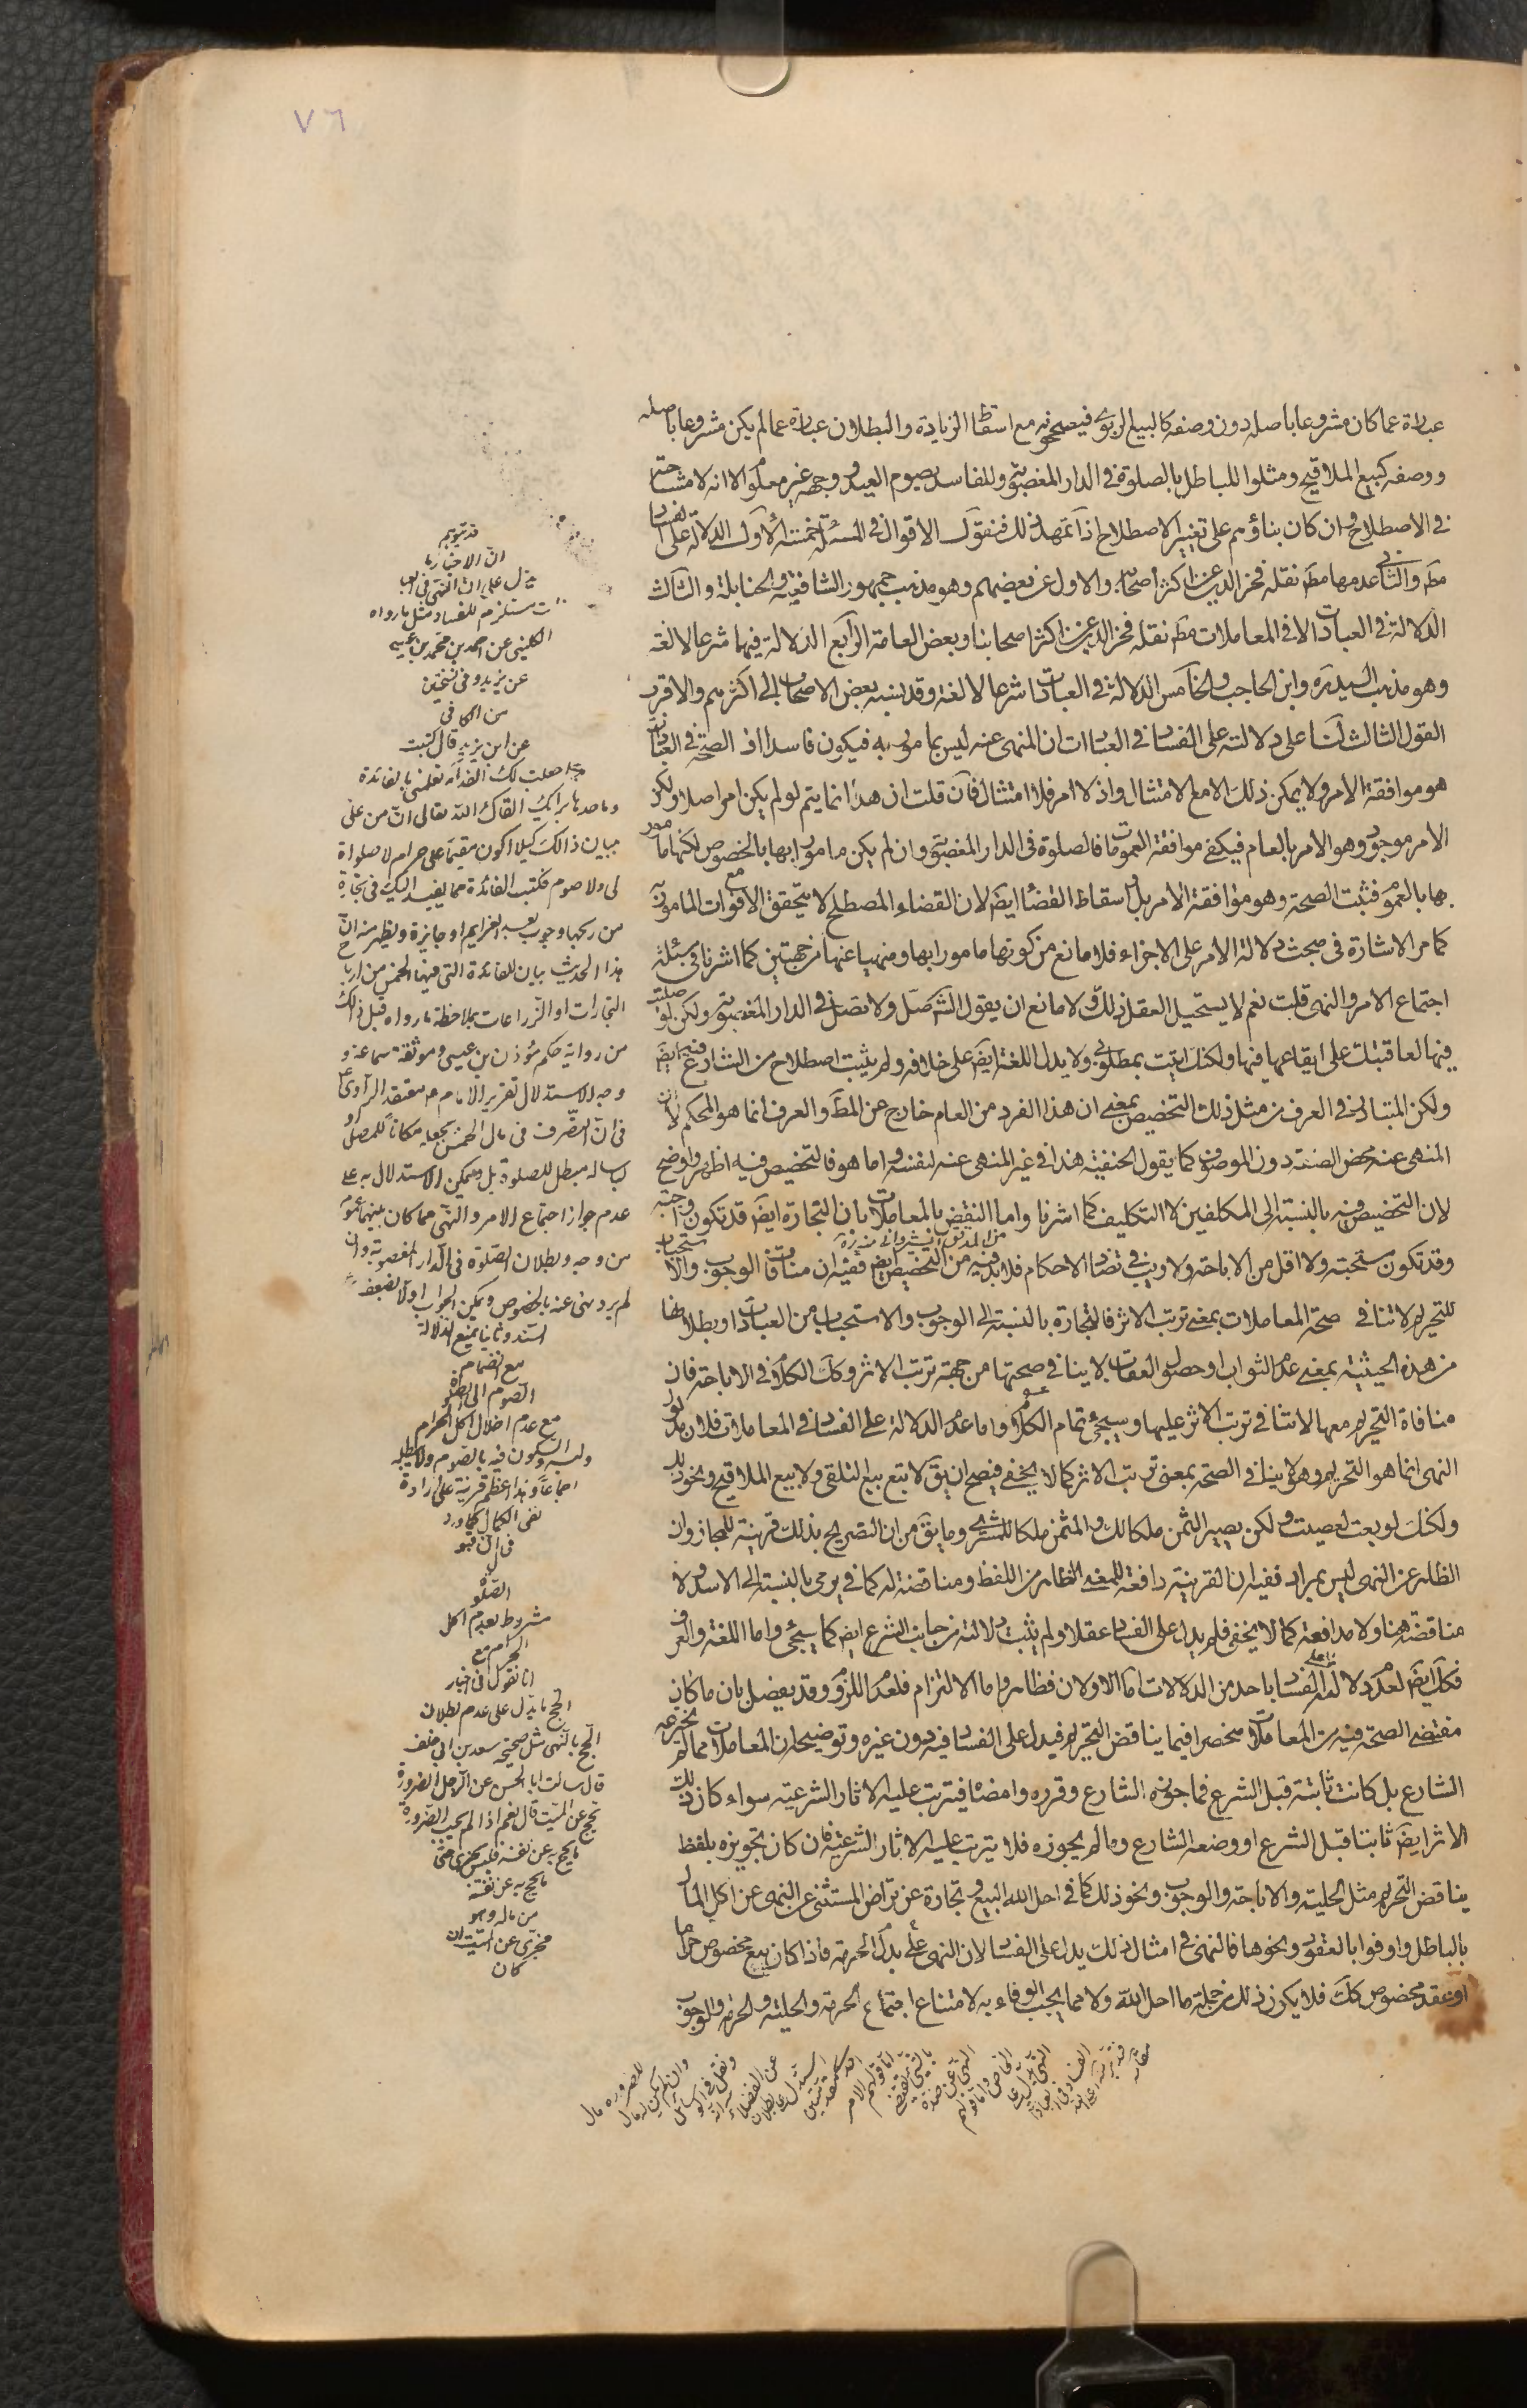 ٧٦
عبارة عما كان مشروعا باصله دون وصفه كالبيع الربوى فيصححونه مع اسقاط الزيادة والبطلان عبارة عما لم يكن مشروعا باصله
ووصفه كبيع الملاقيح ومثلوا للباطل بالصلوة فى الدار المغصوبة وللفاسد بصوم العيد ووجهه غير معلوم الا انه لا مشاحة
فى الاصطلاح وان كان بناؤهم على تغيير الاصطلاح اذا تمهد ذلك فنقول الاقوال فى المسئلة خمسة الاول الدلالة على الفساد
مط والثانى عدمها مط نقله فخر الدين عن اكثر اصحابه والاول عن بعضهم وهو مذهب جمهور الشافعية والحنابلة والثالث
الدلالة فى العبادات لا فى المعاملات مط نقله فخر الدين عن اكثر اصحابنا وبعض العامة الرابع الدلالة فيهما شرعا لا لغة
وهو مذهب السيد ره وابن الحاجب والخامس الدلالة فى العبادات شرعا لا لغة وقد ينسبه بعض الاصحاب الى اكثرهم والاقرب
القول الثالث لنا على دلالته على الفساد فى العبادات ان المنهى عنه ليس بمامور به فيكون فاسدا اذ الصحة فى العبادات
هو موافقة الامر ولا يمكن ذلك الا مع الامتثال واذ لا امر فلا امتثال فان قلت ان هذا انما يتم لو لم يكن امر اصلا ولكن
الامر موجود وهو الامر بالعام فيكفى موافقة العمومات فالصلوة فى الدار المغصوبة وان لم يكن مامورا بها بالخصوص لكنها مامور
بها بالعموم فثبت الصحة وهو موافقة الامر بل اسقاط القضاء ايض لان القضاء المصطلح لا يتحقق الا مع فوات المامور به
كما مر الاشارة فى مبحث دلالة الامر على الاجزاء فلا مانع من كونها مامورا بها ومنهيا عنها من جهتين كما اشرنا فى مسئلة
اجتماع الامر والنهى قلت نعم لا يستحيل العقل ذلك ولا مانع ان يقول الش صل ولا تصل فى الدار المغصوبة ولكن لو صليت
فيها لعاقبتك على ايقاعها فيها ولكنك اتيت بمطلوبى ولا يدل اللغة ايض على خلافه ولم يثبت اصطلاح من الشارع فيه ايض
ولكن المتبادر فى العرف من مثل ذلك التخصيص بمعنى ان هذا الفرد من العام خارج عن المط والعرف انما هو المحكم لا ان
المنهى عنه محض الصفة دون الموصوف كما يقول الحنفية هذا فى غير المنهى عنه لنفسه واما هو فالتخصيص فيه اظهر واوضح
لان التخصيص فيه بالنسبة الى المكلفين لا التكليف كما اشرنا واما النقض بالمعاملات بان التجارة ايض قد تكون واجبة
وقد تكون مستحبة ولا اقل من الاباحة ولا ريب فى تضاد الاحكام فلا بد فيه من التخصيص ايض ففيه ان منافات الوجوب والاستحباب
للتحريم لا تنافى صحة المعاملات بمعنى ترتب الاثر فالتجارة بالنسبة الى الوجوب والاستحباب من العبادات وبطلانها
من هذه الحيثية بمعنى عدم الثواب او حصول العقاب لا ينافى صحتها من جهة ترتب الاثر وكك الكلام فى الاباحة فان
منافاة التحريم معها لا تنافى ترتب الاثر عليها وسيجئ تمام الكلام واما عدم الدلالة على الفساد فى المعاملات فلان مدلول
النهى انما هو التحريم وهو لا ينافى الصحة بمعنى ترتب الاثر كما لا يخفى فيصح ان يق لا تبع بيع التلقى ولا بيع الملاقيح ونحو ذلك
ولكنك لو بعت لعصيت ولكن يصير الثمن ملكا لك والمثمن ملكا للمشترى وما يق من ان التصريح بذلك قرينة للمجاز وان
الظاهر عن النهى ليس بمراد ففيه ان القرينة دافعة للمعنى الظاهر من اللفظ ومناقضة له كما فى يرمى بالنسبة الى الاسد ولا
مناقضة هنا ولا مدافعة كما لا يخفى فلم يدل على الفساد عقلا ولم يثبت دلالته من جانب الشرع ايض كما سيجئ واما اللغة والعرف
فكك ايض لعدم دلالته على الفساد باحد من الدلالات اما الاولان فظاهر واما الالتزام فلعدم اللزوم وقد يفصل بان ما كان
مقتضى الصحة فيه من المعاملات منحصرا فيما يناقض التحريم فيدل على الفساد فيه دون غيره وتوضيحه ان المعاملات مما لم يخترعه
الشارع بل كانت ثابتة قبل الشرع فما جوزه الشارع وقرره وامضاه فيترتب عليه الاثار الشرعية سواء كان ذلك
الاثر ايض ثابتا قبل الشرع او وضعه الشارع وما لم يجوزه فلا يترتب عليه الاثار الشرعية فان كان تجويزه بلفظ
يناقض التحريم مثل الحلية والاباحة والوجوب ونحو ذلك كما فى احل الله البيع وتجارة عن تراض المستثنى عن النهى عن اكل المال
بالباطل واوفوا بالعقود ونحوها فالنهى فى امثال ذلك يدل على الفساد لان النهى يدل على الحرمة فاذا كان بيع مخصوص حراما
او عقد مخصوص كك فلا يكون ذلك من جملة ما احل الله ولا مما يجب الوفاء به لامتناع اجتماع الحرمة والحلية والحرمة والوجوب
قد يتوهم
ان الاخبار ما
يدل على ان النهى فى العبا
دات مستلزم للفساد مثل ما رواه
الكلينى عن احمد بن محمد بن عيسى
عن يزيد وفى نسختين
من الكافى
عن ابن يزيد قال كتبت
جعلت لك الفداء تعلمنى ما الفائدة
وما حدها رايك ابقاك الله تعالى ان تمن على
ببيان ذلك كيلا اكون مقيما على حرام لا صلوة
لى ولا صوم فكتب الفائدة مما يفيد اليك فى تجارة
من ربحها وحرث بعد الغرام او جايزة ويظهر منه ان
هذا الحديث بيان للفائدة التى فيها الخمس من ارباح
التجارات او الزراعات بملاحظة ما رواه قبل ذلك
من رواية حكم مؤذن بن عيسى وموثقة سماعة و
وجه الاستدلال تقرير الامام ع معتقد الراوى
فى ان التصرف فى مال الخمس بجعله مكانا للمصلى او
لباسا له مبطل للصلوة بل ويمكن الاستدلال به على
عدم جواز اجتماع الامر والنهى مما كان بينهما عموم
من وجه وبطلان الصلوة فى الدار المغصوبة وان
لم يرد نهى عنه بالخصوص ويمكن الجواب اولا بضعف
السند وثانيا بمنع الدلالة
مع انضمام
الصوم الى الصلوة
مع عدم اخلال اكل الحرام
ولبسه والسكون فيه بالصوم ولا يبطله
اجماعا وهذا اعظم قرينة على ارادة
نفى الكمال كما ورد
الصلوة
مشروط بعدم اكل
الحرام مع
انا نقول فى اخبار
الحج ما يدل على عدم بطلان
الحج بالنهى مثل صحيحة سعد بن ابى خلف
قال سالت ابا الحسن عن الرجل الصرورة
يحج عن الميت قال نعم اذا لم يجد الصرورة
ما يحج به عن نفسه فليس يجزى حتى
يحج به عن نفسه
من ماله وهو
يجزى عن الميت ان
كان
للصرورة مال
وان لم يكن له مال